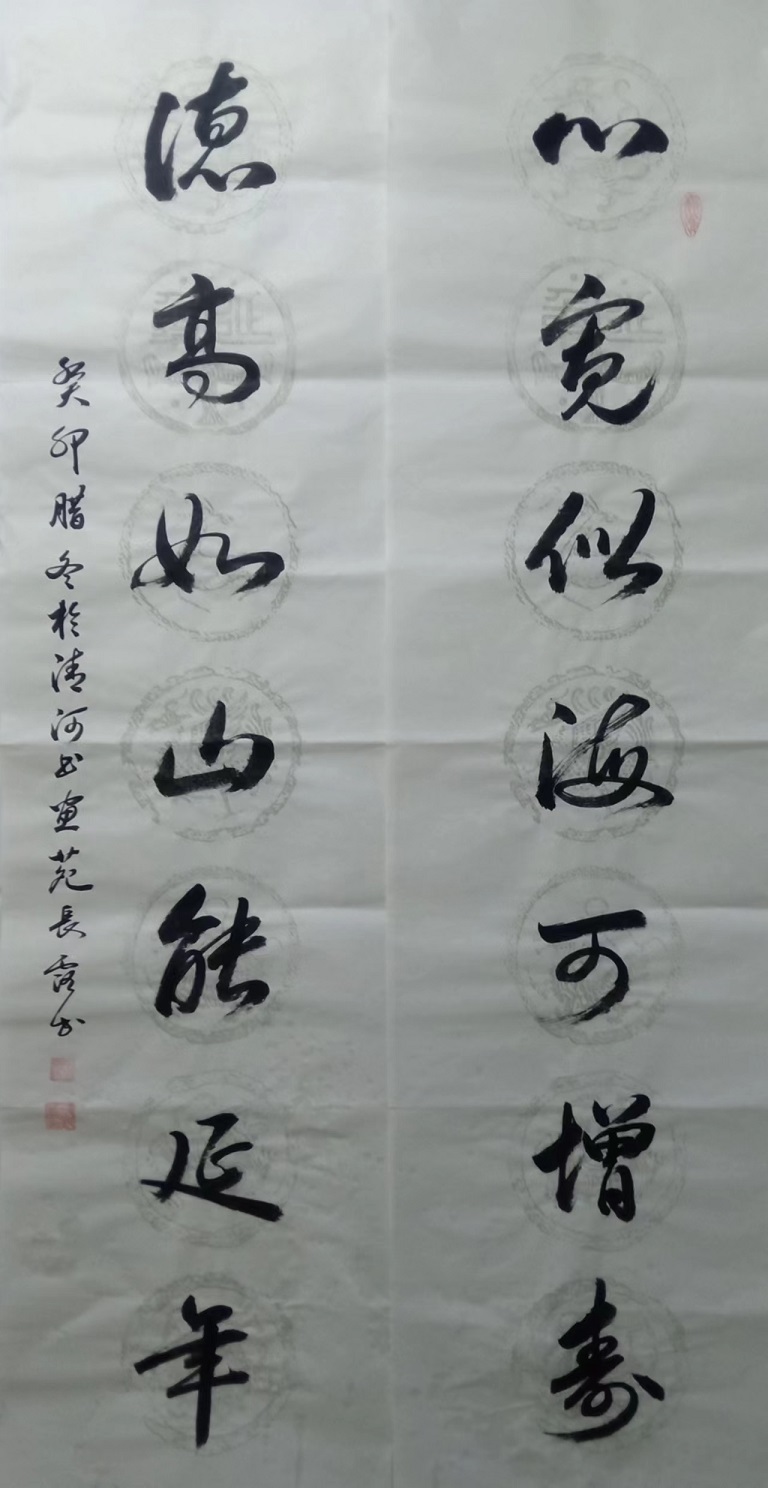 心宽似海可增寿
德高如山能延年
癸卯腊冬於清河书画苑長露书